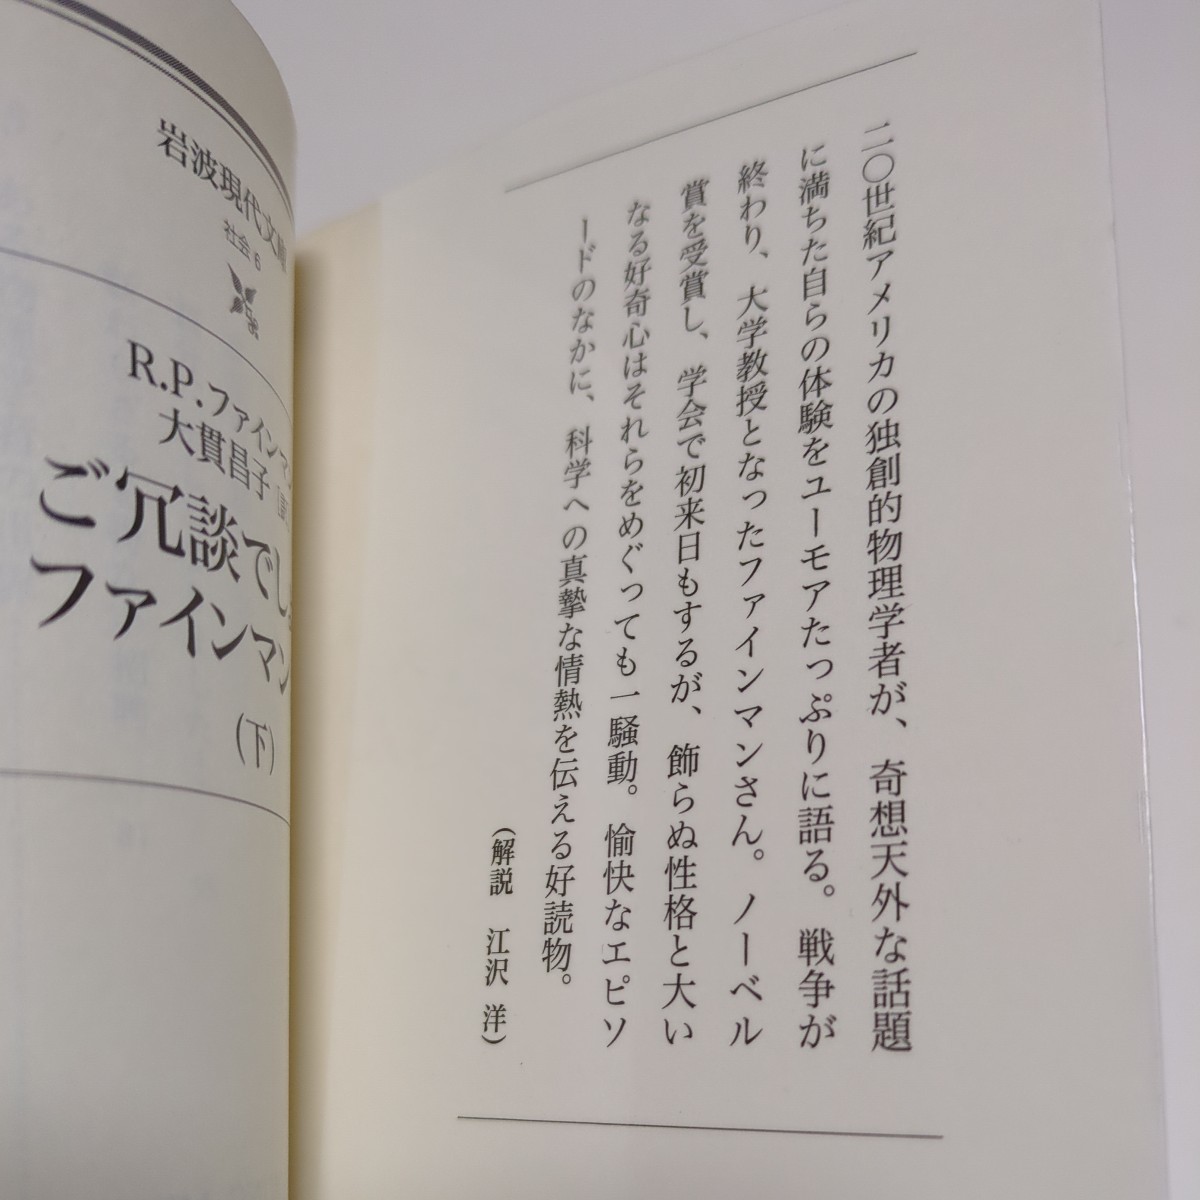 二〇世紀アメリカの独創的物理学者が、奇想天外な話題
に満ちた自らの体験をユーモアたっぷりに語る。戦争が
終わり、大学教授となったファインマンさん。ノーベル
賞を受賞し、学会で初来日もするが、飾らぬ性格と大い
なる好奇心はそれらをめぐっても一騒動。愉快なエピソ
ードのなかに、科学への真摯な情熱を伝える好読物。
(解説 江沢 洋)
岩波現代文庫
社会 6
R.P.ファインマン
大貫昌子
ご冗談でし
ファインマン
(下)